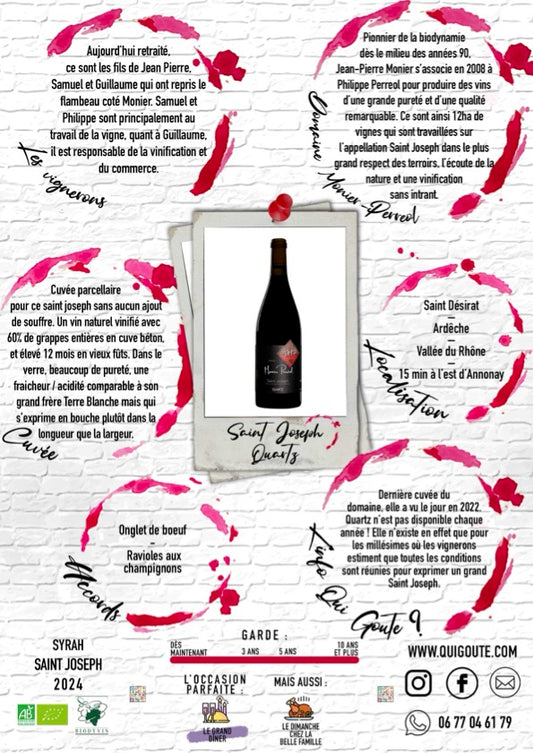 Aujourd'hui retraité,
ce sont les fils de Jean Pierre,
Samuel et Guillaume qui ont repris le
flambeau coté Monier. Samuel et
Philippe sont principalement au
travail de la vigne, quant à Guillaume,
il est responsable de la vinification et
du commerce.
Les vignerons
Pionnier de la biodynamie
dès le milieu des années 90,
Jean-Pierre Monier s'associe en 2008 à
Philippe Perreol pour produire des vins
d'une grande pureté et d'une qualité
remarquable. Ce sont ainsi 12ha de
vignes qui sont travaillées sur
l'appellation Saint Joseph dans le plus
grand respect des terroirs, l'écoute de la
nature et une vinification
sans intrant.
Domaine Monier-Perreol
Cuvée parcellaire
pour ce saint joseph sans aucun ajout
de souffre. Un vin naturel vinifié avec
60% de grappes entières en cuve béton,
et élevé 12 mois en vieux fûts. Dans le
verre, beaucoup de pureté, une
fraicheur / acidité comparable à son
grand frère Terre Blanche mais qui
s'exprime en bouche plutôt dans la
longueur que la largeur.
Cuvée
Monier Perréol
Saint Joseph
Quartz
Saint Désirat
—
Ardèche
—
Vallée du Rhône
—
15 min à l'est d'Annonay
Localisation
Onglet de boeuf
—
Ravioles aux
champignons
Accords
Dernière cuvée du
domaine, elle a vu le jour en 2022.
Quartz n'est pas disponible chaque
année ! Elle n'existe en effet que pour
les millésimes où les vignerons
estiment que toutes les conditions
sont réunies pour exprimer un grand
Saint Joseph.
L'info Qui Goute ?
SYRAH
SAINT JOSEPH
2024
AB
BIODYVIN
GARDE :
DÈS
MAINTENANT
3 ANS
5 ANS
10 ANS
ET PLUS
L'OCCASION
PARFAITE :
LE GRAND
DÎNER
MAIS AUSSI :
LE DIMANCHE
CHEZ LA
BELLE FAMILLE
WWW.QUIGOUTE.COM
06 77 04 61 79